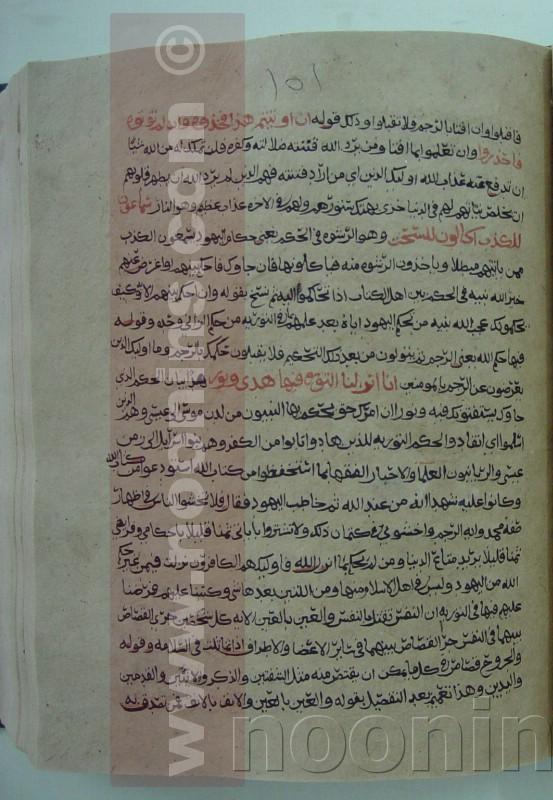 ١٥١
فاقبلوا وان افتا بالرجم فلا تقبلوا وذلك قوله ان اوتيتم هذا فخذوه وان لم تؤتوه
فاحذروا وان تعلمهم انما افتا ومن يرد الله فتنته ضلالته وكفره فلن تملك له من الله شيئا
ان تدفع عنه عذاب الله اوليك الذين اي من اراد فتنته فهم الذين لم يرد الله ان يطهر قلوبهم
ان يخلص نياتهم لهم في الدنيا خزي بهتك ستورهم ولهم في الاخرة عذاب عظيم وهو النار سماعون
للكذب اكالون للسحت وهو الرشوة في الحكم يعني حكام اليهود يسمعون الكذب
ممن ياتيهم مبطلا وياخذون الرشوة منه فياكلونها فان جاوك فاحكم بينهم او اعرض عنهم
خير الله نبيه في الحكم بين اهل الكتاب اذا تحاكموا اليه ثم نسخ بقوله وان احكم بينهم الاية وكيف
يحكمونك عجب الله نبيه من تحكيم اليهود اياه بعد علمهم بما في التورية من حكم الزاني وحده وقوله
فيها حكم الله يعني الرجم ثم يتولون من بعد ذلك التحكيم فلا يقبلون حكمك بالرجم وما اوليك الذين
يعرضون عن الرجم بالمومنين انا انزلنا التورية فيها هدى ونور بيان الحكم الذي
جاوك يستفتونك فيه ونور ان امرك حق يحكم بها النبيون من لدن موسى الى عيسى وهم الذين
اسلموا اي انقادوا لحكم التورية للذين هادوا تابوا من الكفر وهم بنوا اسرايل الى زمن
عيسى والربانيون العلما والاحبار الفقها بما استحفظوا من كتاب الله استودعوا من كتاب الله
وكانوا عليه شهدا انه من عند الله ثم خاطب اليهود فقال فلا تخشوا الناس في اظهار
صفة محمد واية الرجم واخشوني في كتمان ذلك ولا تشتروا باياتي ثمنا قليلا باحكامي وفرايضي
ثمنا قليلا يريد متاع الدنيا ومن لم يحكم بما انزل الله فاوليك هم الكافرون نزلت فيمن غير حكم
الله من اليهود وليس في اهل الاسلام منها ومن اللتين بعدها شي وكتبنا عليهم فرضنا
عليهم فيها في التورية ان النفس تقتل بالنفس والعين بالعين الاية كل شخصين جرى القصاص
بينهما في النفس جرى القصاص بينهما في ساير الاعضا والاطراف اذا تماثلت في السلامة وقوله
والجروح قصاص في كل ما يمكن ان يقتص منه مثل الشفتين والذكر والانثيين والقدمين
واليدين وهذا تعميم بعد التفصيل بقوله والعين بالعين والانف بالانف فمن تصدق به
www.noormags.com ©
noonin